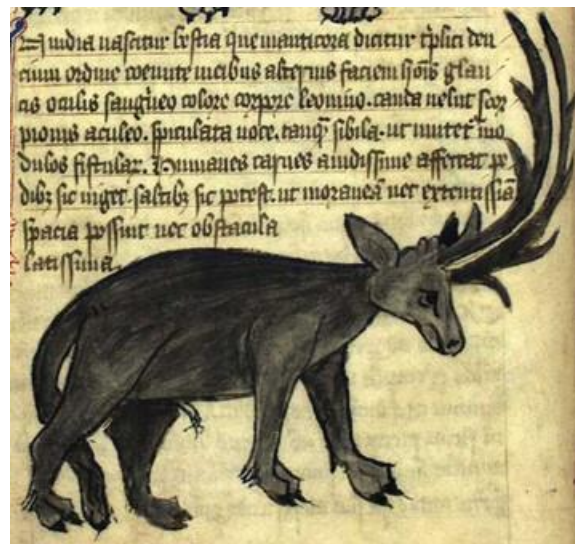 In india nascitur bestia que manticora dicitur tͥplici den
cium ordine coeunte uicibus alternis faciem hoīs glau
cis oculis sangͥneo colore corpore leonino. cauda uelut scor
pionis aculeo. spiculata uoce. tanqͣ sibila. ut imitetʳ mo
dulos fistulaꝝ. Humanes carnes auidissime affectat pe
dibꝫ sic uiget. saltibꝫ sic potest. ut morari eā nec extentissiā
spacia possint nec obstacula
latissima.